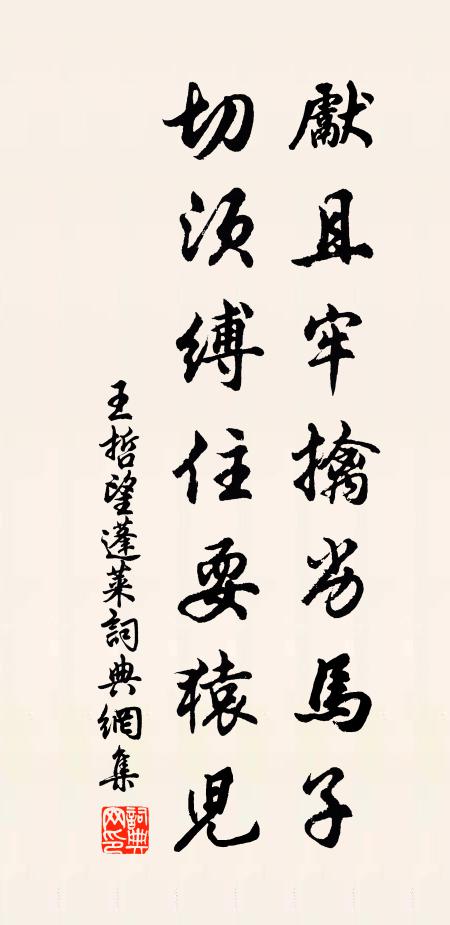 獻且牢擒劣馬子
切須縛住耍猿児
王哲望蓬萊詞典網集
詞典網印